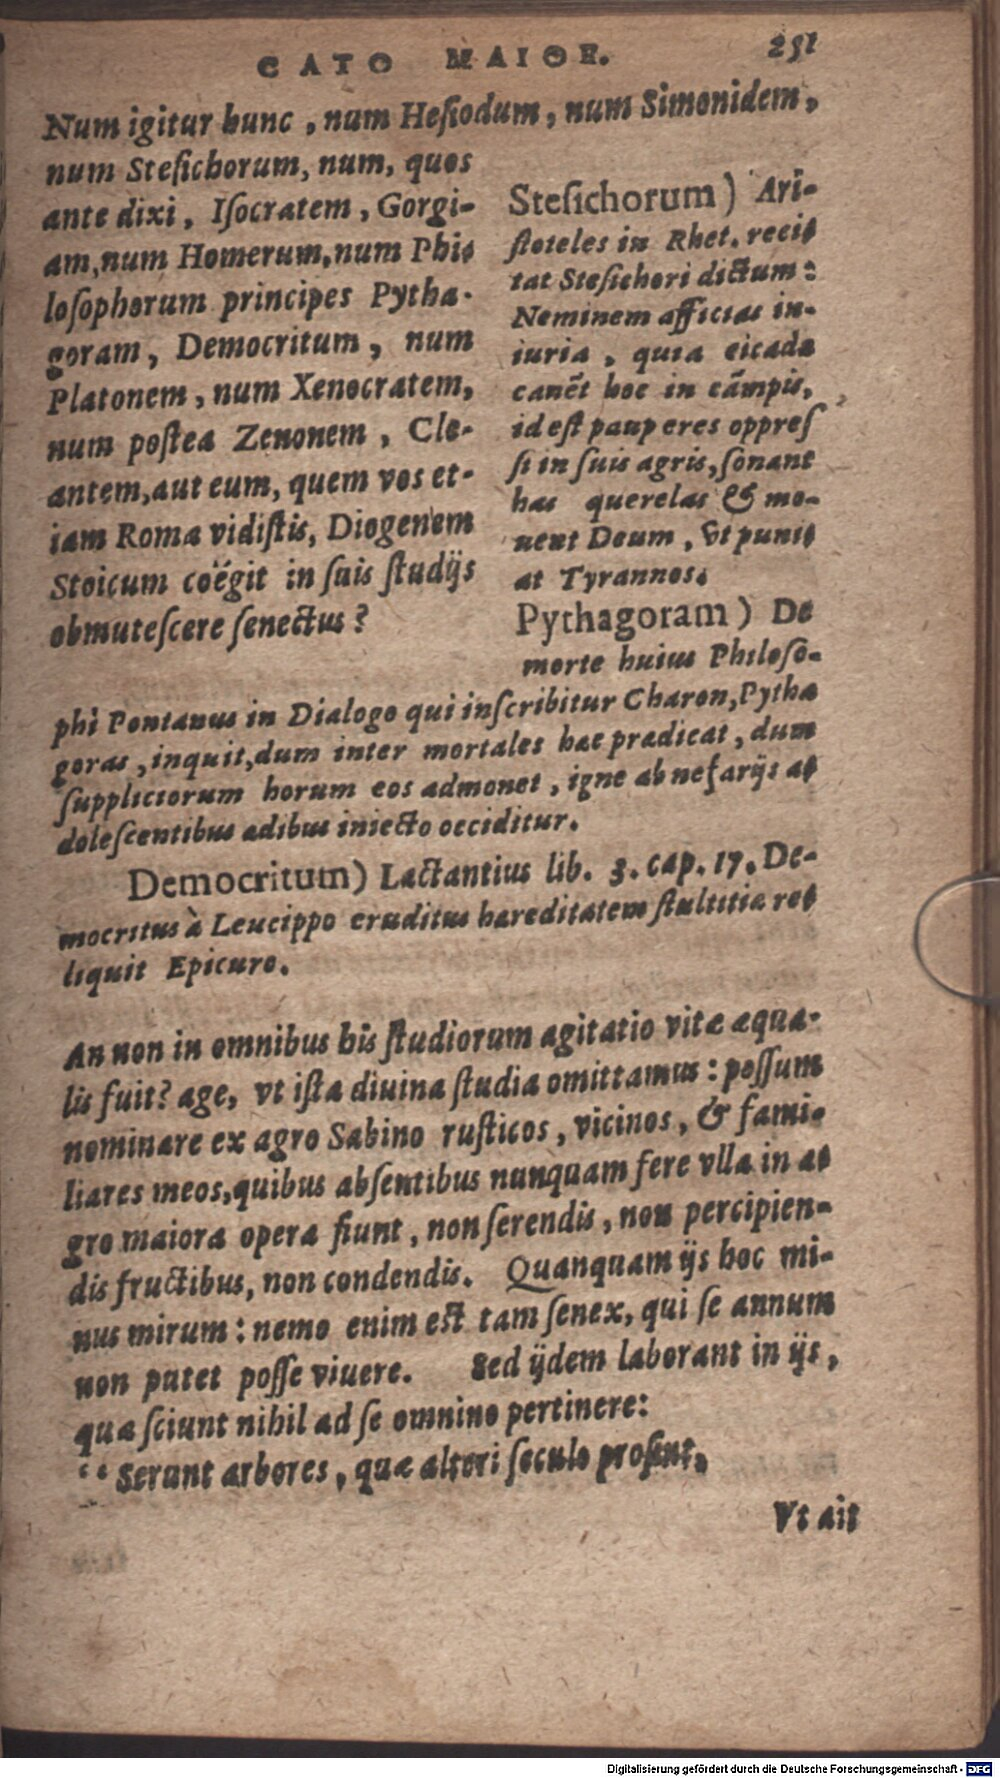 CATO MAIOR. 251
Num igitur hunc, num Hesiodum, num Simonidem,
num Stesichorum, num, quos
ante dixi, Isocratem, Gorgi-
am, num Homerum, num Phi-
losophorum principes Pytha-
goram, Democritum, num
Platonem, num Xenocratem,
num postea Zenonem, Cle-
antem, aut eum, quem vos et-
iam Roma vidistis, Diogenem
Stoicum coëgit in suis studijs
obmutescere senectus?
Stesichorum) Ari-
stoteles in Rhet. reci-
tat Stesichori dictum:
Neminem afficias in-
iuria, quia cicada
canēt hoc in cāmpis,
id est pauperes oppres
si in suis agris, sonant
has querelas & mo-
uent Deum, vt puni-
at Tyrannos.
Pythagoram) De
morte huius Philoso-
phi Pontanus in Dialogo qui inscribitur Charon, Pytha
goras, inquit, dum inter mortales hæc prædicat, dum
suppliciorum horum eos admonet, igne ab nefarijs a-
dolescentibus ædibus iniecto occiditur.
Democritum) Lactantius lib. 3. cap. 17. De-
mocritus à Leucippo eruditus hæreditatem stultitiæ re-
liquit Epicuro.
An non in omnibus his studiorum agitatio vitæ æqua-
lis fuit? age, vt ista diuina studia omittamus: possum
nominare ex agro Sabino rusticos, vicinos, & fami-
liares meos, quibus absentibus nunquam fere vlla in a-
gro maiora opera fiunt, non serendis, non percipien-
dis fructibus, non condendis. Quanquam ijs hoc mi-
nus mirum: nemo enim est tam senex, qui se annum
non putet posse viuere. Sed ijdem laborant in ijs,
quæ sciunt nihil ad se omnino pertinere:
“ Serunt arbores, quæ alteri seculo prosint,
Vt ait
Digitalisierung gefördert durch die Deutsche Forschungsgemeinschaft - DFG